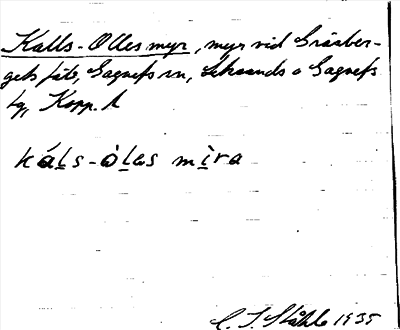 Kalls-Olles myr, myr vid Gråber-
gets fot, Gagnefs sn, Leksands o Gagnefs
tg, Kopp. l
káļs-òļas mìra
C. I. Ståhle 1935